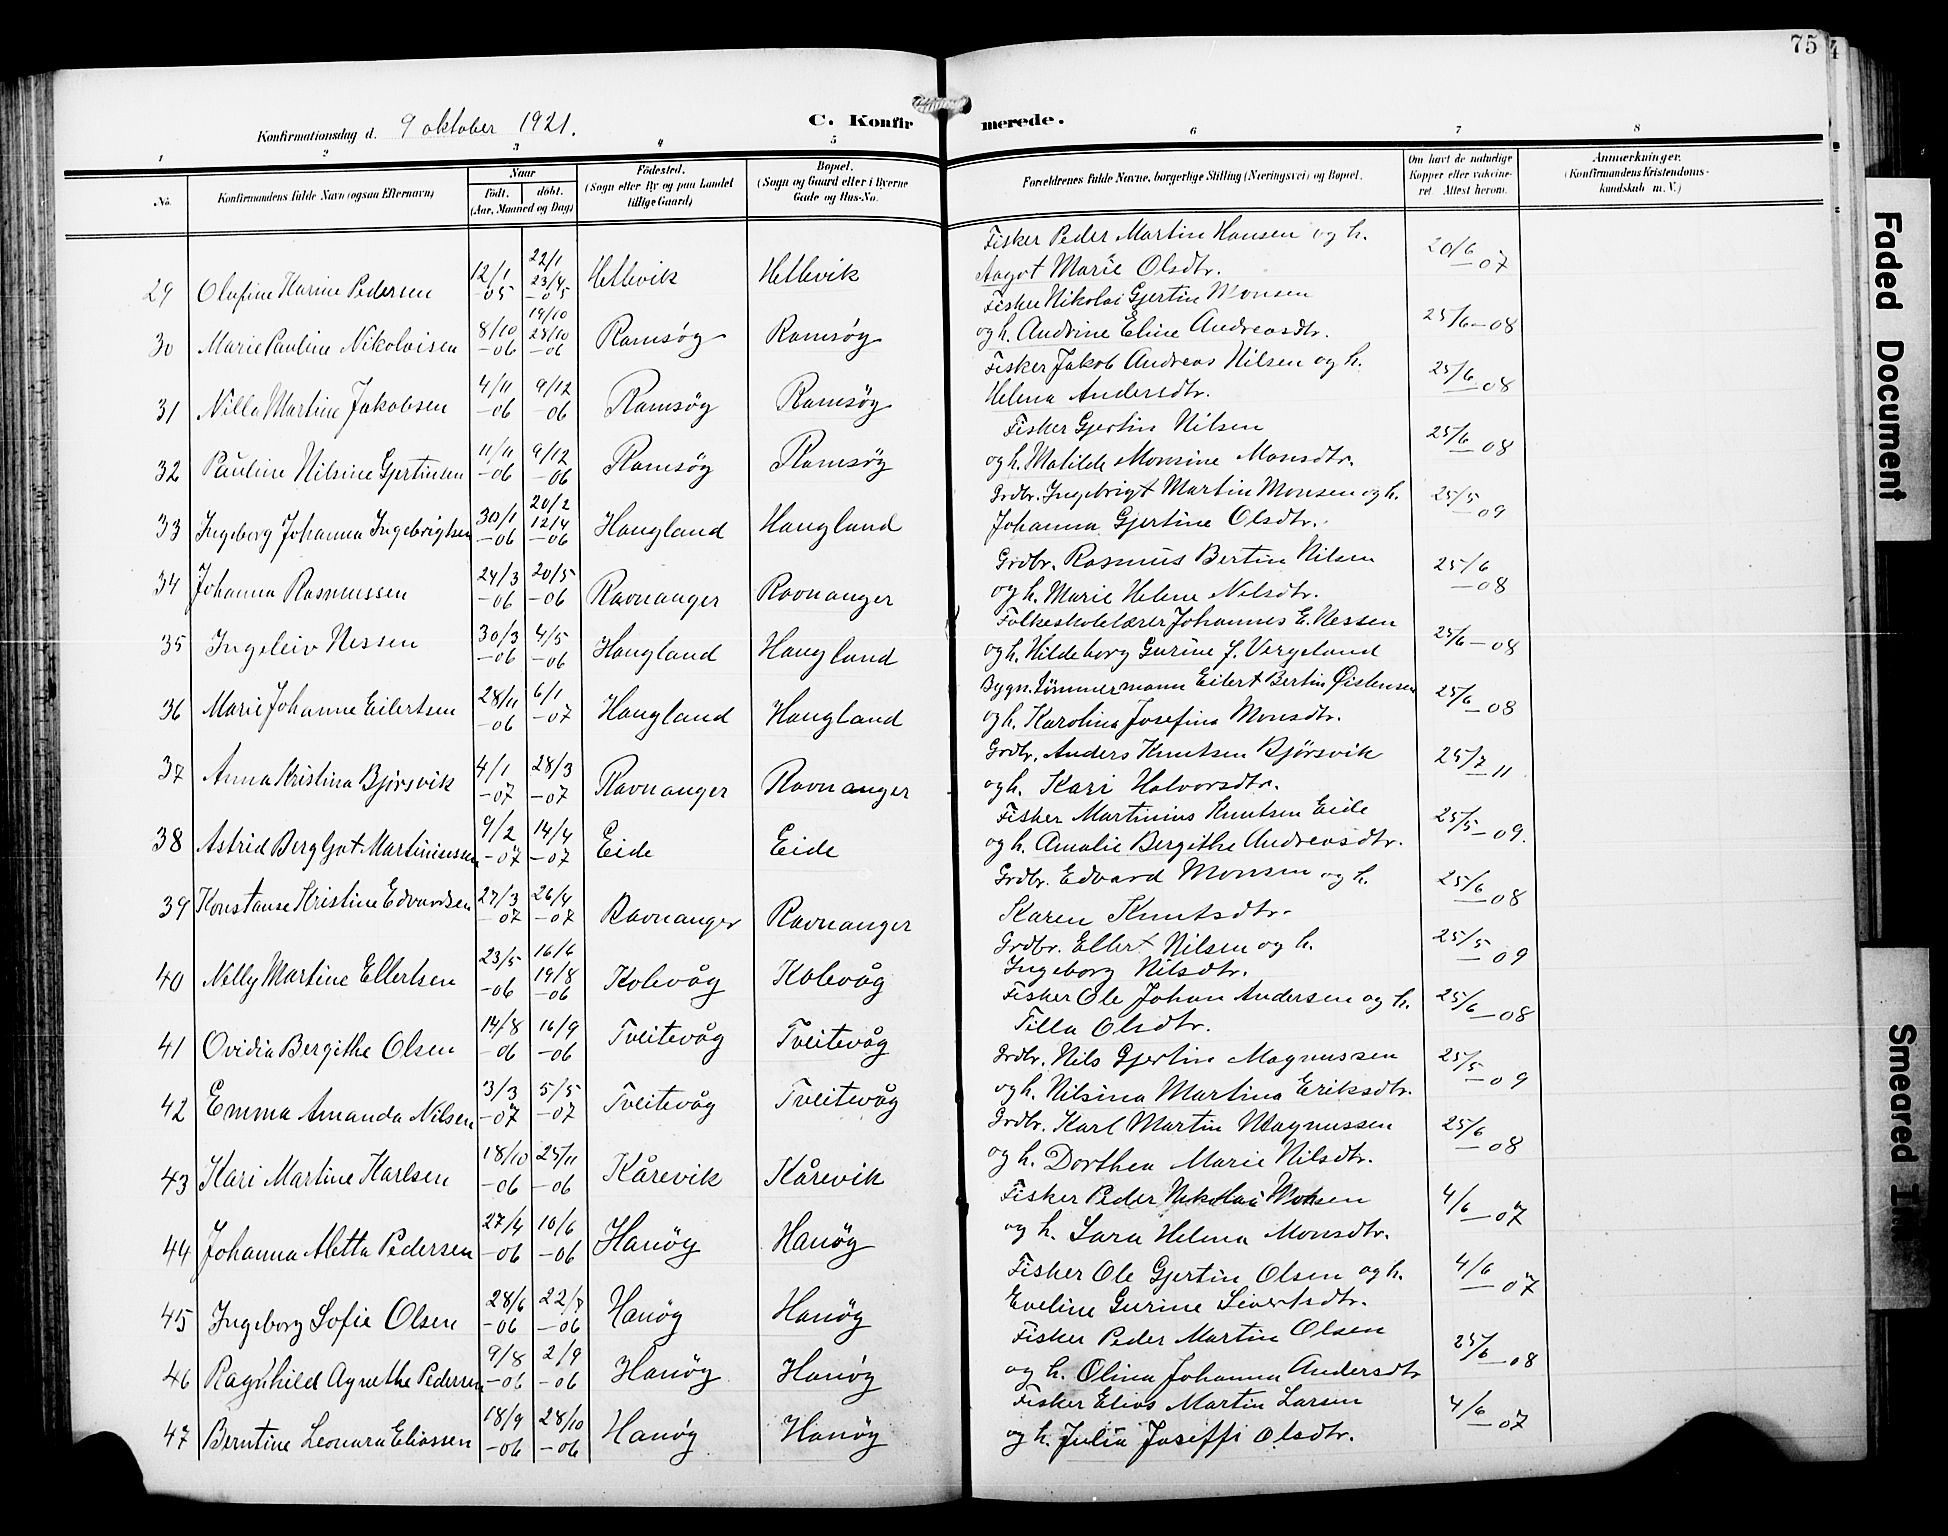 75
Konfirmationsdag d. 9 oktober 1921.
C. Konfirmerede.
1 2 3 4 5 6 7 8
No. Konfirmandens fulde Navn (ogsaa Efternavn) Naar født. døbt. (Aar, Maaned og Dag) Fødested. (Sogn eller By og paa Landet tillige Gaard) Bopæl. (Sogn og Gaard eller i Byerne Gade og Hus-No. Forældrenes fulde Navne, borgerlige Stilling (Næringsvei) og Bopæl. Om havt de naturlige Kopper eller vakcineret. Attest herom. Anmærkninger. (Konfirmandens Kristendomskundskab m. V.)
29 Olufine Karine Pedersen 12/1 -05 22/1 23/4 -05 Hellevik Hellevik Fisker Peder Martin Hansen og h. Aagot Marie Olsdtr. 20/6 -07
30 Marie Pauline Nikolaisen 8/10 -06 19/10 28/10 -06 Ramsøy Ramsøy Fisker Nikolai Gjertin Monsen og h. Andrine Eline Andreasdtr. 25/6-08
31 Nilla Martine Jakobsen 4/11 -06 9/12 -06 Ramsøy Ramsøy Fisker Jakob Andreas Nilsen og h. Helena Andersdtr. 25/6 -08
32 Pauline Nilsine Gjertinsen 11/11 -06 9/12 -06 Ramsøy Ramsøy Fisker Gjertin Nilsen og h. Matilde Monsine Monsdtr. 25/6 -08
33 Ingeborg Johanna Ingebrigtsen 30/1 -06 20/2 12/4 -06 Haugland Haugland Grdbr. Ingebrigt Martin Monsen og h. Johanna Gjertine Olsdtr. 25/5 -09
34 Johanna Rasmussen 24/3 -06 20/5 -06 Ravnanger Ravnanger Grdbr. Rasmus Bertin Nilsen og h. Marie Helene Nilsdtr. 25/6 -08
35 Ingeleiv Nessen 30/3 -06 4/5 -06 Haugland Haugland Folkeskolelærer Johannes E. Nessen og h. Hildeborg Gurine f. Vergeland 25/6-08
36 Marie Johanne Eilertsen 28/11 -06 6/1 -07 Haugland Haugland Bygn. tømmermann Eilert Bertin Øistensen og h. Karolina Josefina Monsdtr. 25/6 -08
37 Anna Kristina Bjørsvik 4/1 -07 28/3 -07 Ravnanger Ravnanger Grdbr. Anders Knutsen Bjørsvik og h. Kari Halvorsdtr. 25/7 -11
38 Astrid Bergljot Martinussen 9/2 -07 14/4 -07 Eide Eide Fisker Martinius Knutsen Eide og h. Amalie Bergithe Andreasdtr. 25/5-09.
39 Konstanse Kristine Edvardsen 27/3 -07 26/4 -07 Ravnanger Ravnanger Grdbr. Edvard Monsen og h. Karen Knutsdtr. 25/6 -08
40 Nelly Martine Ellertsen 23/5 -06 16/6 19/8 -06 Kolevåg Kolevåg Grdbr. Ellert Nilsen og h. Ingeborg Nilsdtr. 25/5 -09
41 Ovidia Bergithe Olsen 14/8 -06 16/9 -06 Tveitevåg Tveitevåg Fisker Ole Johan Andersen og h. Tilla Olsdtr. 25/6 -08
42 Emma Amanda Nilsen 3/3 -07 5/5 -07 Tveitevåg Tveitevåg Grdbr. Nils Gjertin Magnussen og h. Nilsina Martina Eriksdtr. 25/5 -09
43 Kari Martine Karlsen 18/10 -06 25/11 -06 Kårevik Kårevik Grdbr. Karl Martin Magnussen og h. Dorthea Marie Nilsdtr. 25/6 -08
44 Johanna Metta Pedersen 27/4 -06 10/6 -06 Hanøy Hanøy Fisker Peder Nikolai Monsen og h. Sara Helena Monsdtr. 4/6 -07
45 Ingeborg Sofie Olsen 28/6 -06 22/7 -06 Hanøy Hanøy Fisker Ole Gjertin Olsen og h. Eveline Gurine Sivertsdtr. 4/6 -07
46 Ragnhild Agnethe Pedersen 9/8 -06 2/9 -06 Hanøy Hanøy Fisker Peder Martin Olsen og h. Olina Johanna Andersdtr 25/6 -08
47 Berntine Leonara Eliassen 18/9 -06 28/10 -06 Hanøy Hanøy Fisker Elias Martin Larsen og h. Julia Joseffi Olsdtr. 4/6 -07
Faded Document
Smeared Ink